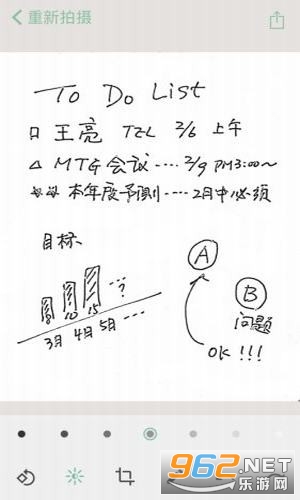 重新拍摄
To Do List
口 王亮 TEL 2/6 上午
△ MTG 会议 ···· 2/9 PM3:00~
本年度予測 ···· 2月中必須
目标
A
B
问题
OK!!!
8 10 15 ···?
3月 4月 5月 ···
962.NET
乐游网